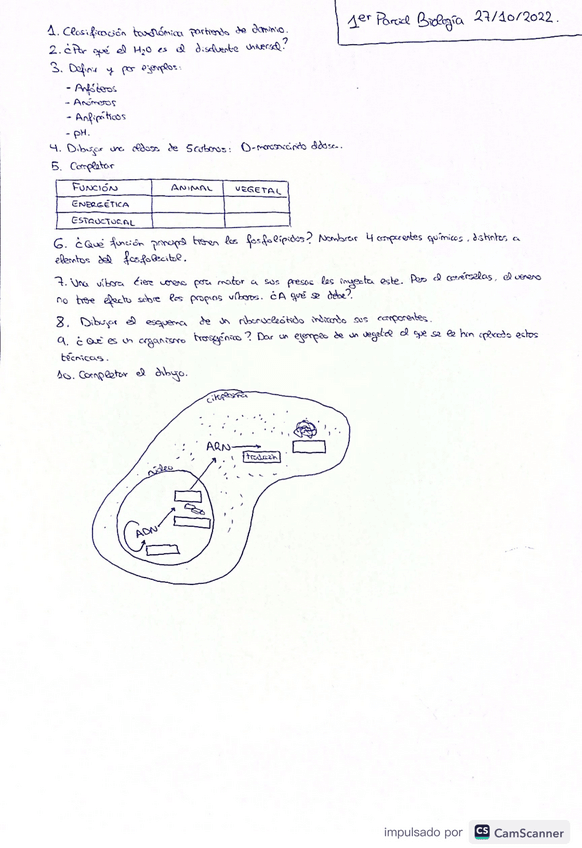 1er Parcial Biología 27/10/2022.
1. Clasificación taxonómica partiendo de dominio.
2. ¿Por qué el H2O es el disolvente universal?
3. Definir y por ejemplos:
- Anfóteros
- Anómeros
- Anfipáticos
- pH.
4. Dibujar una aldosa de 5 carbonos: D-
5. Completar
FUNCIÓN ANIMAL VEGETAL
ENERGÉTICA
ESTRUCTURAL
6. ¿Qué función principal tienen los fosfolípidos? Nombrar 4 componentes químicos, distintos a
elementos del
7. Una víbora tiene veneno para matar a sus presas las inyecta este. Pero al comérselas, el veneno
no tiene efecto sobre las propias víboras. ¿A qué se debe?
8. Dibujar el esquema de un ribonucleótido indicando sus componentes.
9. ¿Qué es un organismo transgénico? Dar un ejemplo de un vegetal al que se le han aplicado estas
técnicas.
10. Completar el dibujo.
citoplasma
ARN
núcleo
ADN
impulsado por CS CamScanner